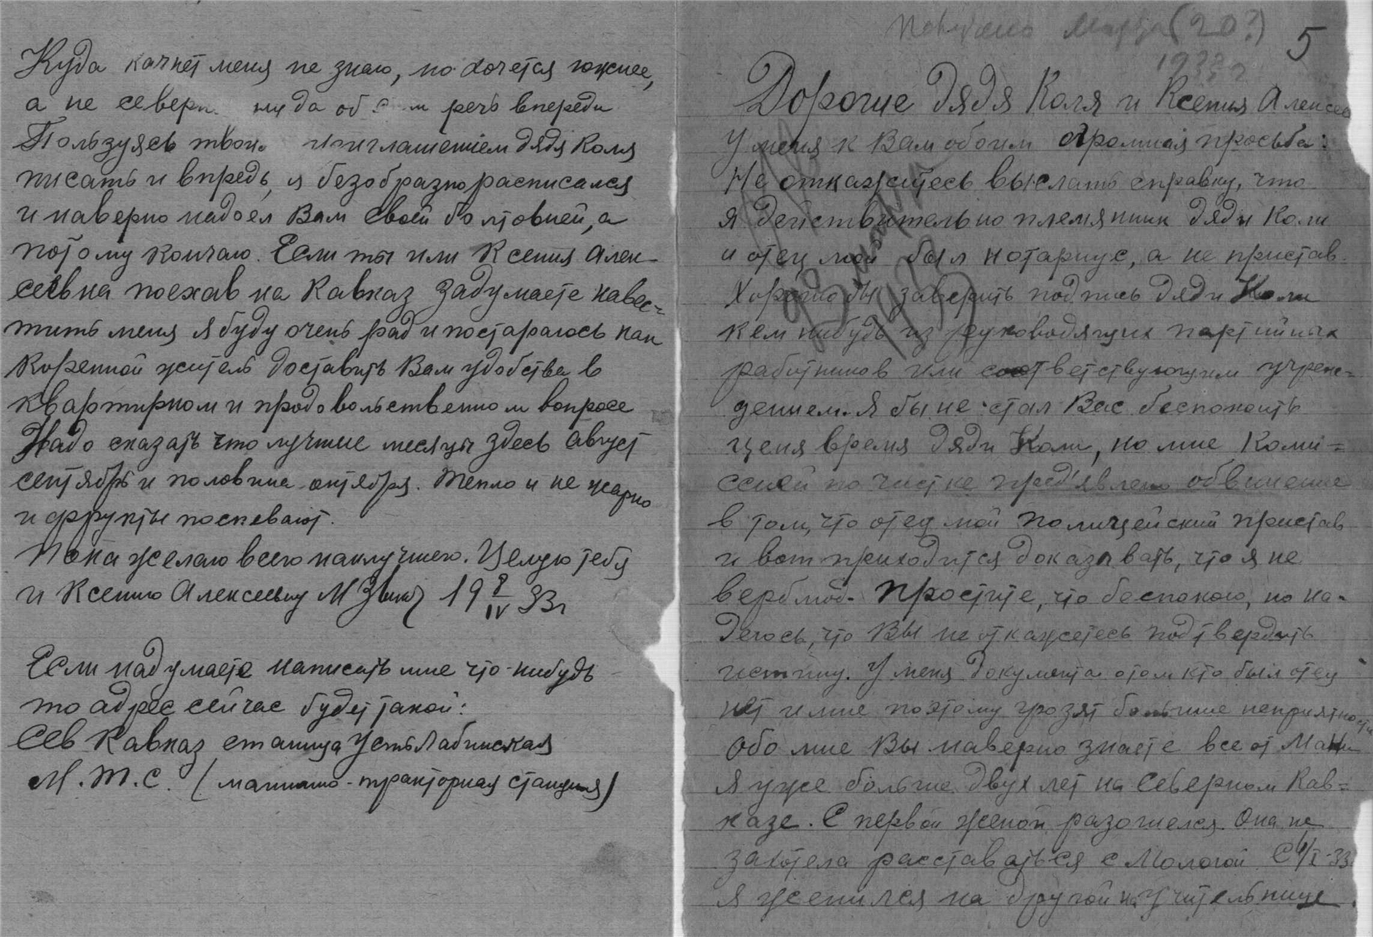 Куда качнет меня не знаю, но хочется южнее,
а не север речь впереди
Пользуясь твоим приглашением дядя Коля
писать и впредь, я безобразно расписался
и наверно надоел Вам своей болтовней, а
потому кончаю. Если ты или Ксения Алек-
сеевна поехав на Кавказ задумаете навес=
тить меня я буду очень рад и постараюсь как
коренной житель доставить Вам удобства в
квартирном и продовольственном вопросе
Надо сказать что лучшие месяцы здесь август
сентябрь и половина октября. Тепло и не жарко
и фрукты поспевают.
Пока желаю всего наилучшего. Целую тебя
и Ксению Алексеевну 19 IV 33г
Если надумаете написать мне что-нибудь
то адрес сейчас будет такой:
Сев Кавказ станица Усть Лабинская
М.Т.С. (машинно-тракторная станция)
Получено Марта (20?) 5
1933г
Дорогие дядя Коля и Ксения Алексеев
У меня к Вам обоим огромная просьба:
Не откажитесь выслать справку, что
я действительно племянник дяди Коли
и отец мой был нотариус, а не пристав.
Хорошо бы заверить подпись дяди Коли
кем нибудь из руководящих партийных
работников или соответствующим учреж=
дением. Я бы не стал Вас беспокоить
ценя время дяди Коли, но мне Коми=
ссией по чистке пред'явлено обвинение
в том, что отец мой полицейский пристав
и вот приходится доказывать, что я не
верблюд. Простите, что беспокою, но на-
деюсь, что Вы не откажетесь подтвердить
истину. У меня документа о том кто был отец
нет и мне поэтому грозят большие неприятности
Обо мне Вы наверно знаете все от Мани
Я уже больше двух лет на Северном Кав=
казе. С первой женой разошелся. Она не
захотела расставаться с Мологой С 1/I-33
я женился на другой учительнице.
23 марта
1933